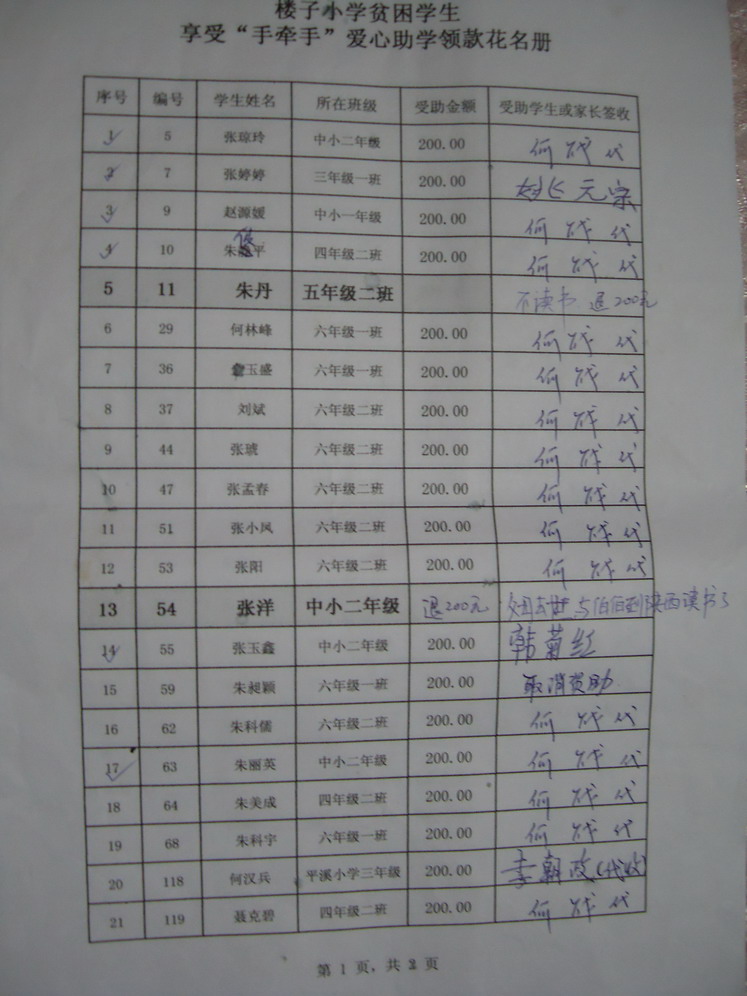 楼子小学贫困学生
享受“手牵手”爱心助学领款花名册
序号 编号 学生姓名 所在班级 受助金额 受助学生或家长签收
1 5 张琼玲 中小二年级 200.00 何 代
2 7 张婷婷 三年级一班 200.00 元宗
3 9 赵源媛 中小一年级 200.00 何 代
4 10 朱 平 四年级二班 200.00 何 代
5 11 朱丹 五年级二班 不读书 退200元
6 29 何林峰 六年级一班 200.00 何 代
7 36 玉盛 六年级一班 200.00 何 代
8 37 刘斌 六年级二班 200.00 何 代
9 44 张琥 六年级二班 200.00 何 代
10 47 张孟春 六年级二班 200.00 何 代
11 51 张小凤 六年级二班 200.00 何 代
12 53 张阳 六年级二班 200.00 何 代
13 54 张洋 中小二年级 退200元 与伯伯到陕西读书了
14 55 张玉鑫 中小二年级 200.00 韩菊红
15 59 朱昶颖 六年级一班 200.00 取消资助
16 62 朱科儒 六年级二班 200.00 何 代
17 63 朱丽英 中小二年级 200.00 何 代
18 64 朱美成 四年级二班 200.00 何 代
19 68 朱科宇 六年级一班 200.00 何 代
20 118 何汉兵 平溪小学三年级 200.00 李朝政(代收)
21 119 聂克碧 四年级二班 200.00 何 代
第 1 页，共 2 页